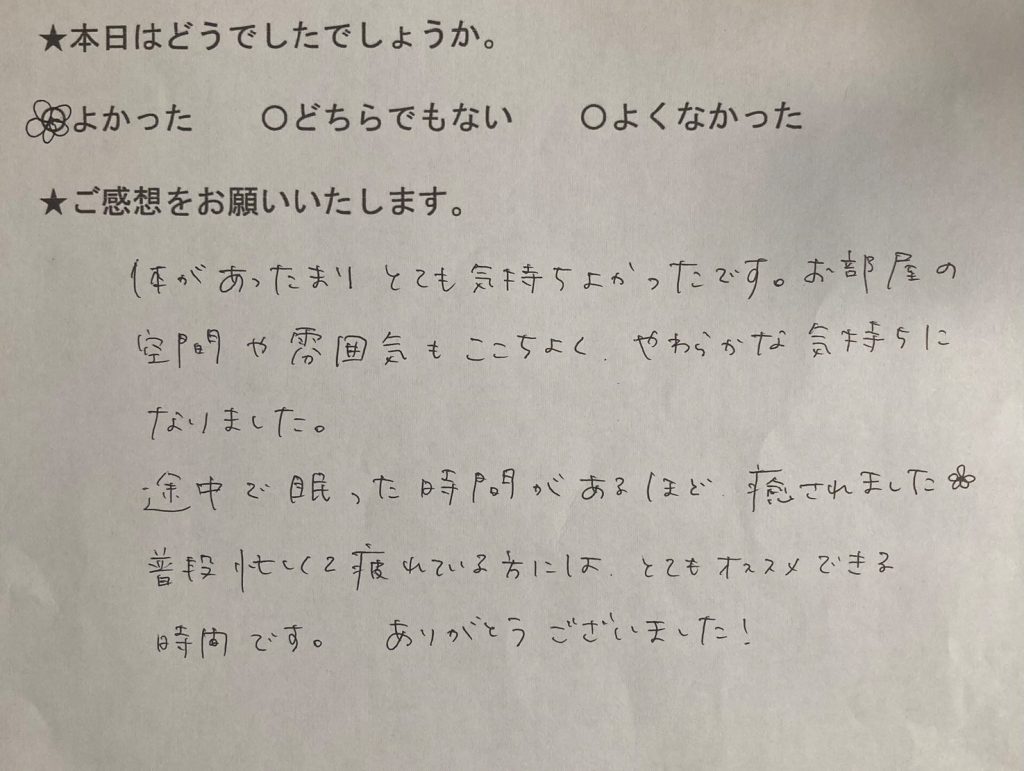 ★本日はどうでしたでしょうか。
○よかった ○どちらでもない ○よくなかった
★ご感想をお願いいたします。
体があったまり とても気持ちよかったです。お部屋の
空間や雰囲気もここちよく、やわらかな気持ちに
なりました。
途中で眠った時間があるほど、癒されました
普段忙しくて疲れている方には、とてもオススメできる
時間です。 ありがとうございました！